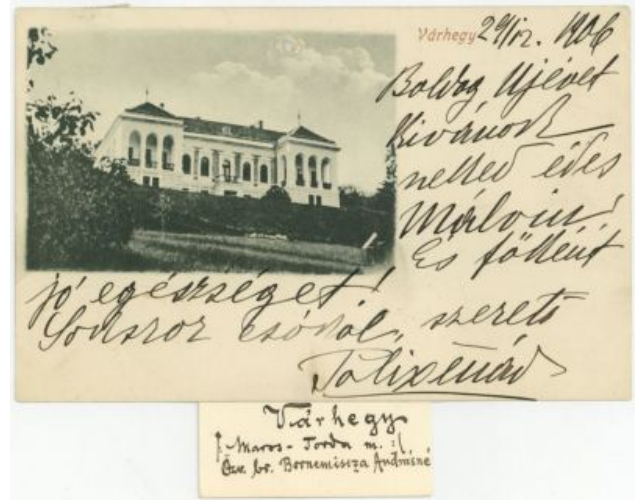 Várhegy 29/12. 1906
Boldog Újévet
kivánok
neked édes
Málvin!
És főként
jó egészséget!
Sokszor csókol, szerető
Polixénád
Várhegy
Maros-Torda m. :(
Özv. br. Bornemissza